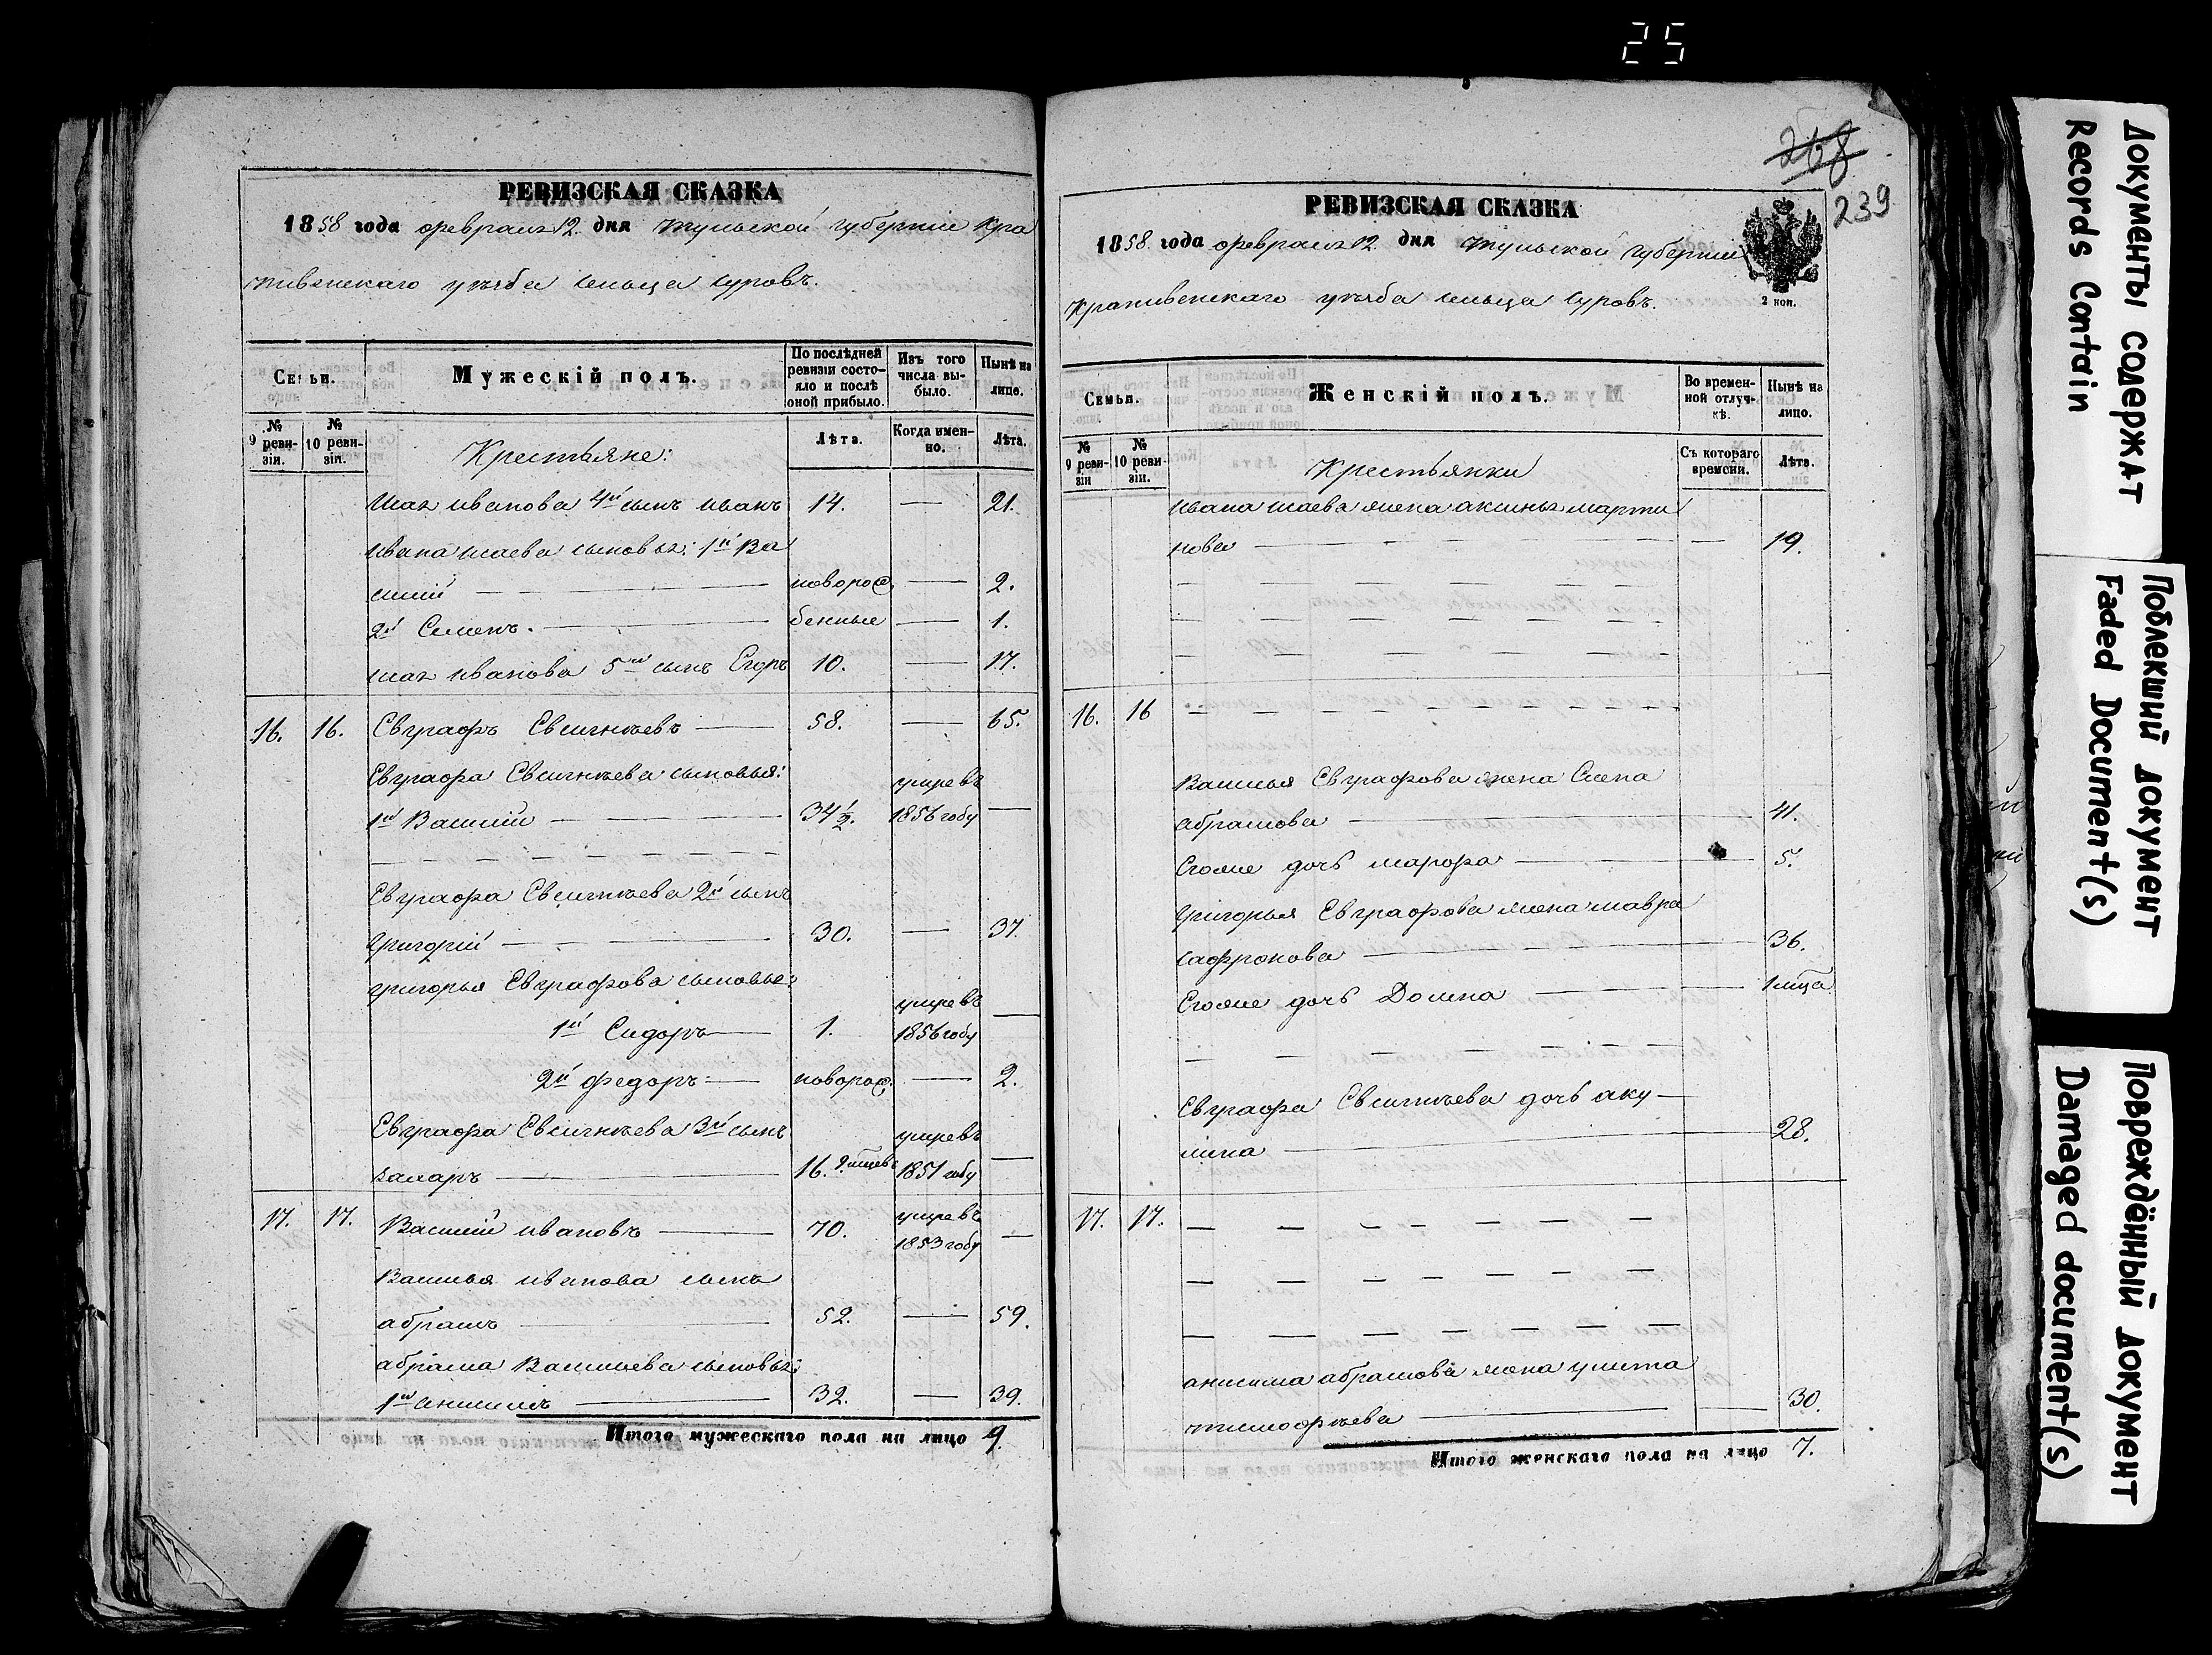 25
РЕВИЗСКАЯ СКАЗКА
1858 года февраля 12 дня Тульской губерніи Кра
пивенскаго уѣзда сельца Суровъ.
Семьи.
Мужескій полъ.
По послѣдней ревизіи состояло и послѣ оной прибыло.
Изъ того числа выбыло.
Нынѣ на лицо.
№ 9 ревизіи.
№ 10 ревизіи.
Крестьяне:
Лѣта.
Когда именно.
Лѣта.
Исая иванова 4й сынъ иванъ 14. — 21.
ивана исаева сыновья: 1й Ва
силій — новорож — 2.
2й Семенъ. — денные — 1.
исая иванова 5й сынъ Егоръ 10. — 17.
16. 16. Евграфъ Евсигнѣевъ — 58. — 65.
Евграфа Евсигнѣева сыновья:
1й Василій — 34½. умре въ 1856 году —
Евграфа Евсигнѣева 2й сынъ
григорій — 30. — 37.
григорья Евграфова сыновья:
1й Сидоръ — 1. умре въ 1856 году —
2й федоръ — новорож. — 2.
Евграфа Евсигнѣева 3й сынъ
захаръ — 16. 9 мцевъ умре въ 1851 году —
17. 17. Василій ивановъ — 70. умре въ 1853 году —
Василья иванова сынъ
абрамъ — 52. — 59.
абрама Васильева сыновья:
1й анисимъ — 32. — 39.
Итого мужескаго пола на лицо 9.
268
239
РЕВИЗСКАЯ СКАЗКА
1858 года февраля 12 дня Тульской губерніи
2 коп.
Крапивенскаго уѣзда сельца Суровъ.
Семьи.
Женскій полъ.
Во временной отлучкѣ.
Нынѣ на лицо.
№ 9 ревизіи
№ 10 ревизіи.
Крестьянки
Съ котораго времени.
Лѣта.
ивана исаева жена аксинья марти
нова — — 19.
16. 16
Василья Евграфова жена
абрамова — 41.
Егоже дочь марфа — 5.
григорья Евграфова жена мавра
сафронова — 36.
Егоже дочь Домна — 1 мца
Евграфа Евсигнѣева дочь аку—
лина — 28.
17. 17.
анисима абрамова жена улита
тимофѣева — — 30.
Итого женскаго пола на лицо 7.
Документы содержат
Records Contain
Поблекший документ
Faded Document(s)
Повреждённый документ
Damaged document(s)